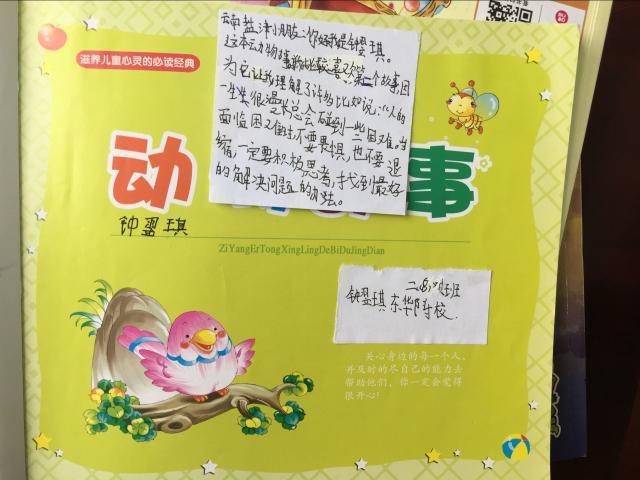 滋养儿童心灵的必读经典
云南盐津小朋友:你好我是钟翌琪。
这本动物故事我比较喜欢第二个故事因
为它让我理解了许多比如说:“人的
一生很漫长总会碰到一些困难。当
面临困难时不要畏惧,也不要退
缩,一定要积极思考,找到最好
的解决问题的办法。
动 事
钟翌琪
ZiYangErTongXingLingDeBiDuJingDian
班
钟翌琪 东华附校
关心身边的每一个人,
并及时的尽自己的能力去
帮助他们,你一定会觉得
很开心!